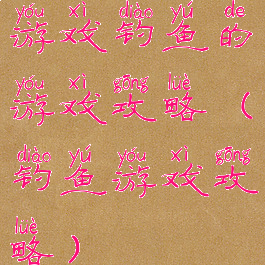 yóu xì diào yú de
游戏钓鱼的
yóu xì gōng lüè
游戏攻略（
diào yú yóu xì gōng
钓鱼游戏攻
lüè
略）